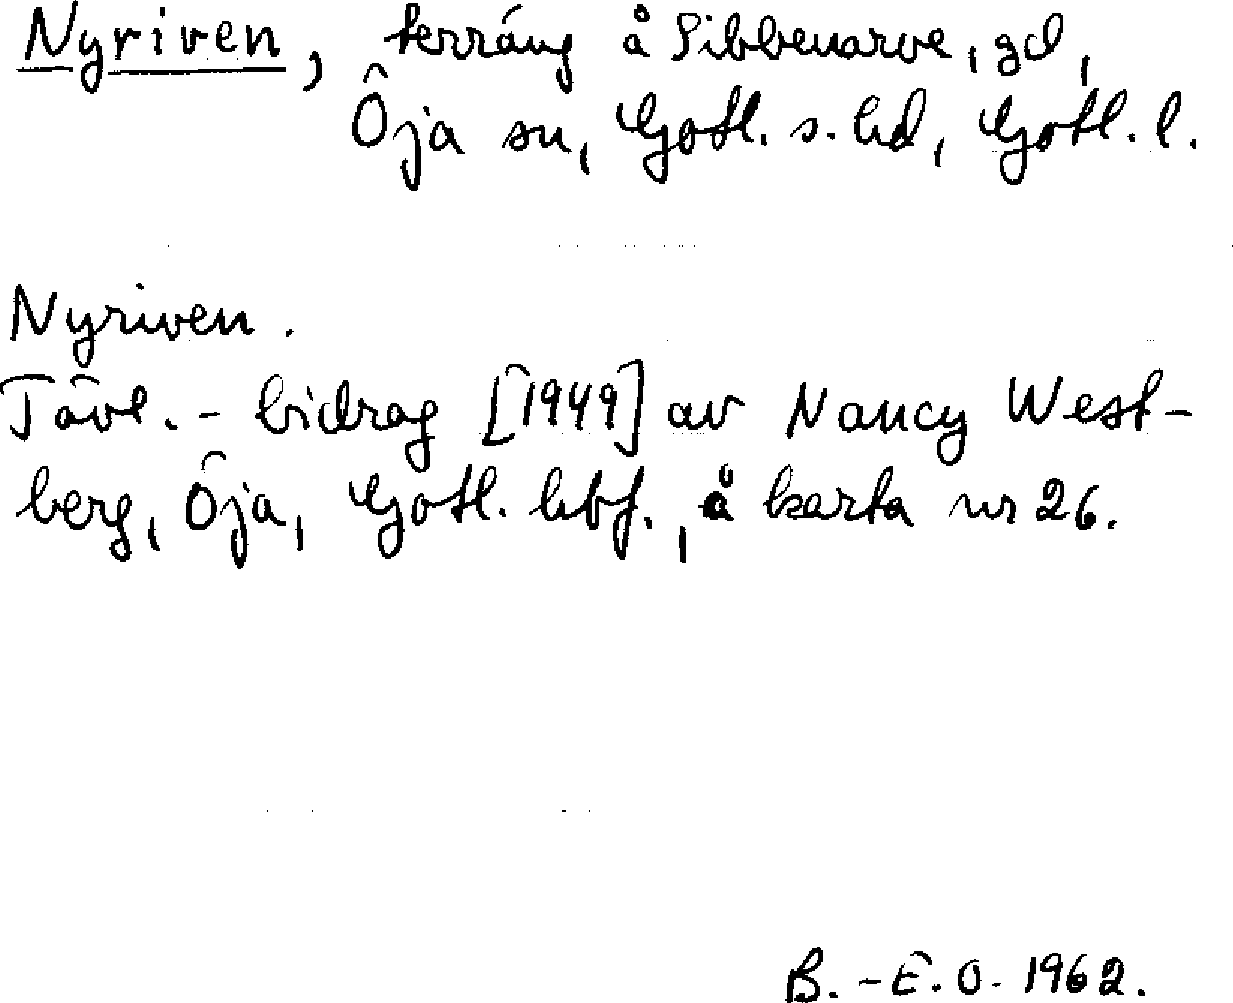 Nyriven, terräng å Sibbenarve, gd,
Öja sn, Gotl. s. hd, Gotl. l.
Nyriven.
Tävl.-bidrag [1949] av Nancy West-
berg, Öja, Gotl. kbf., å karta nr 26.
B.-E. O. 1962.